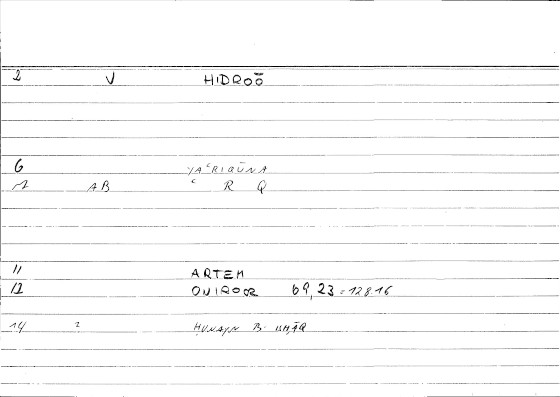 2 V HIDROŌ
6 YAʿRIQŪNA
AB ʿ R Q
11 ARTEM
12 ONIROCR 69,23 = 128.16
14 ? ḤUNAYN B. ISḤĀQ